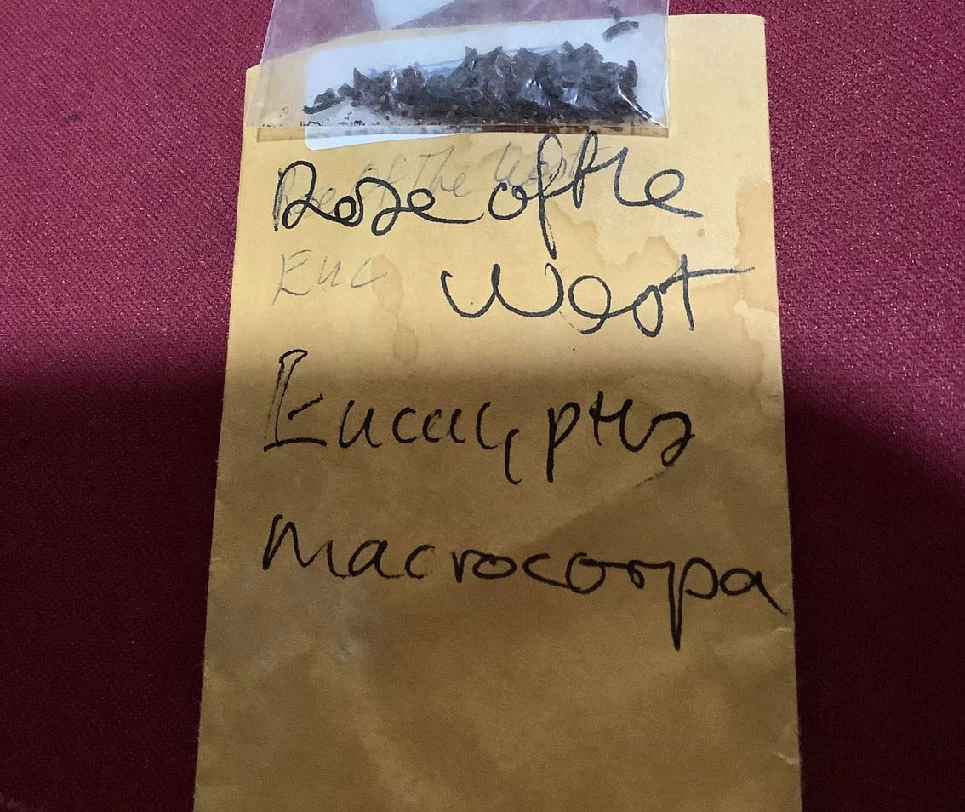 Rose of The West
Rose of the
Euc
West
Eucalyptus
Macrocorpa